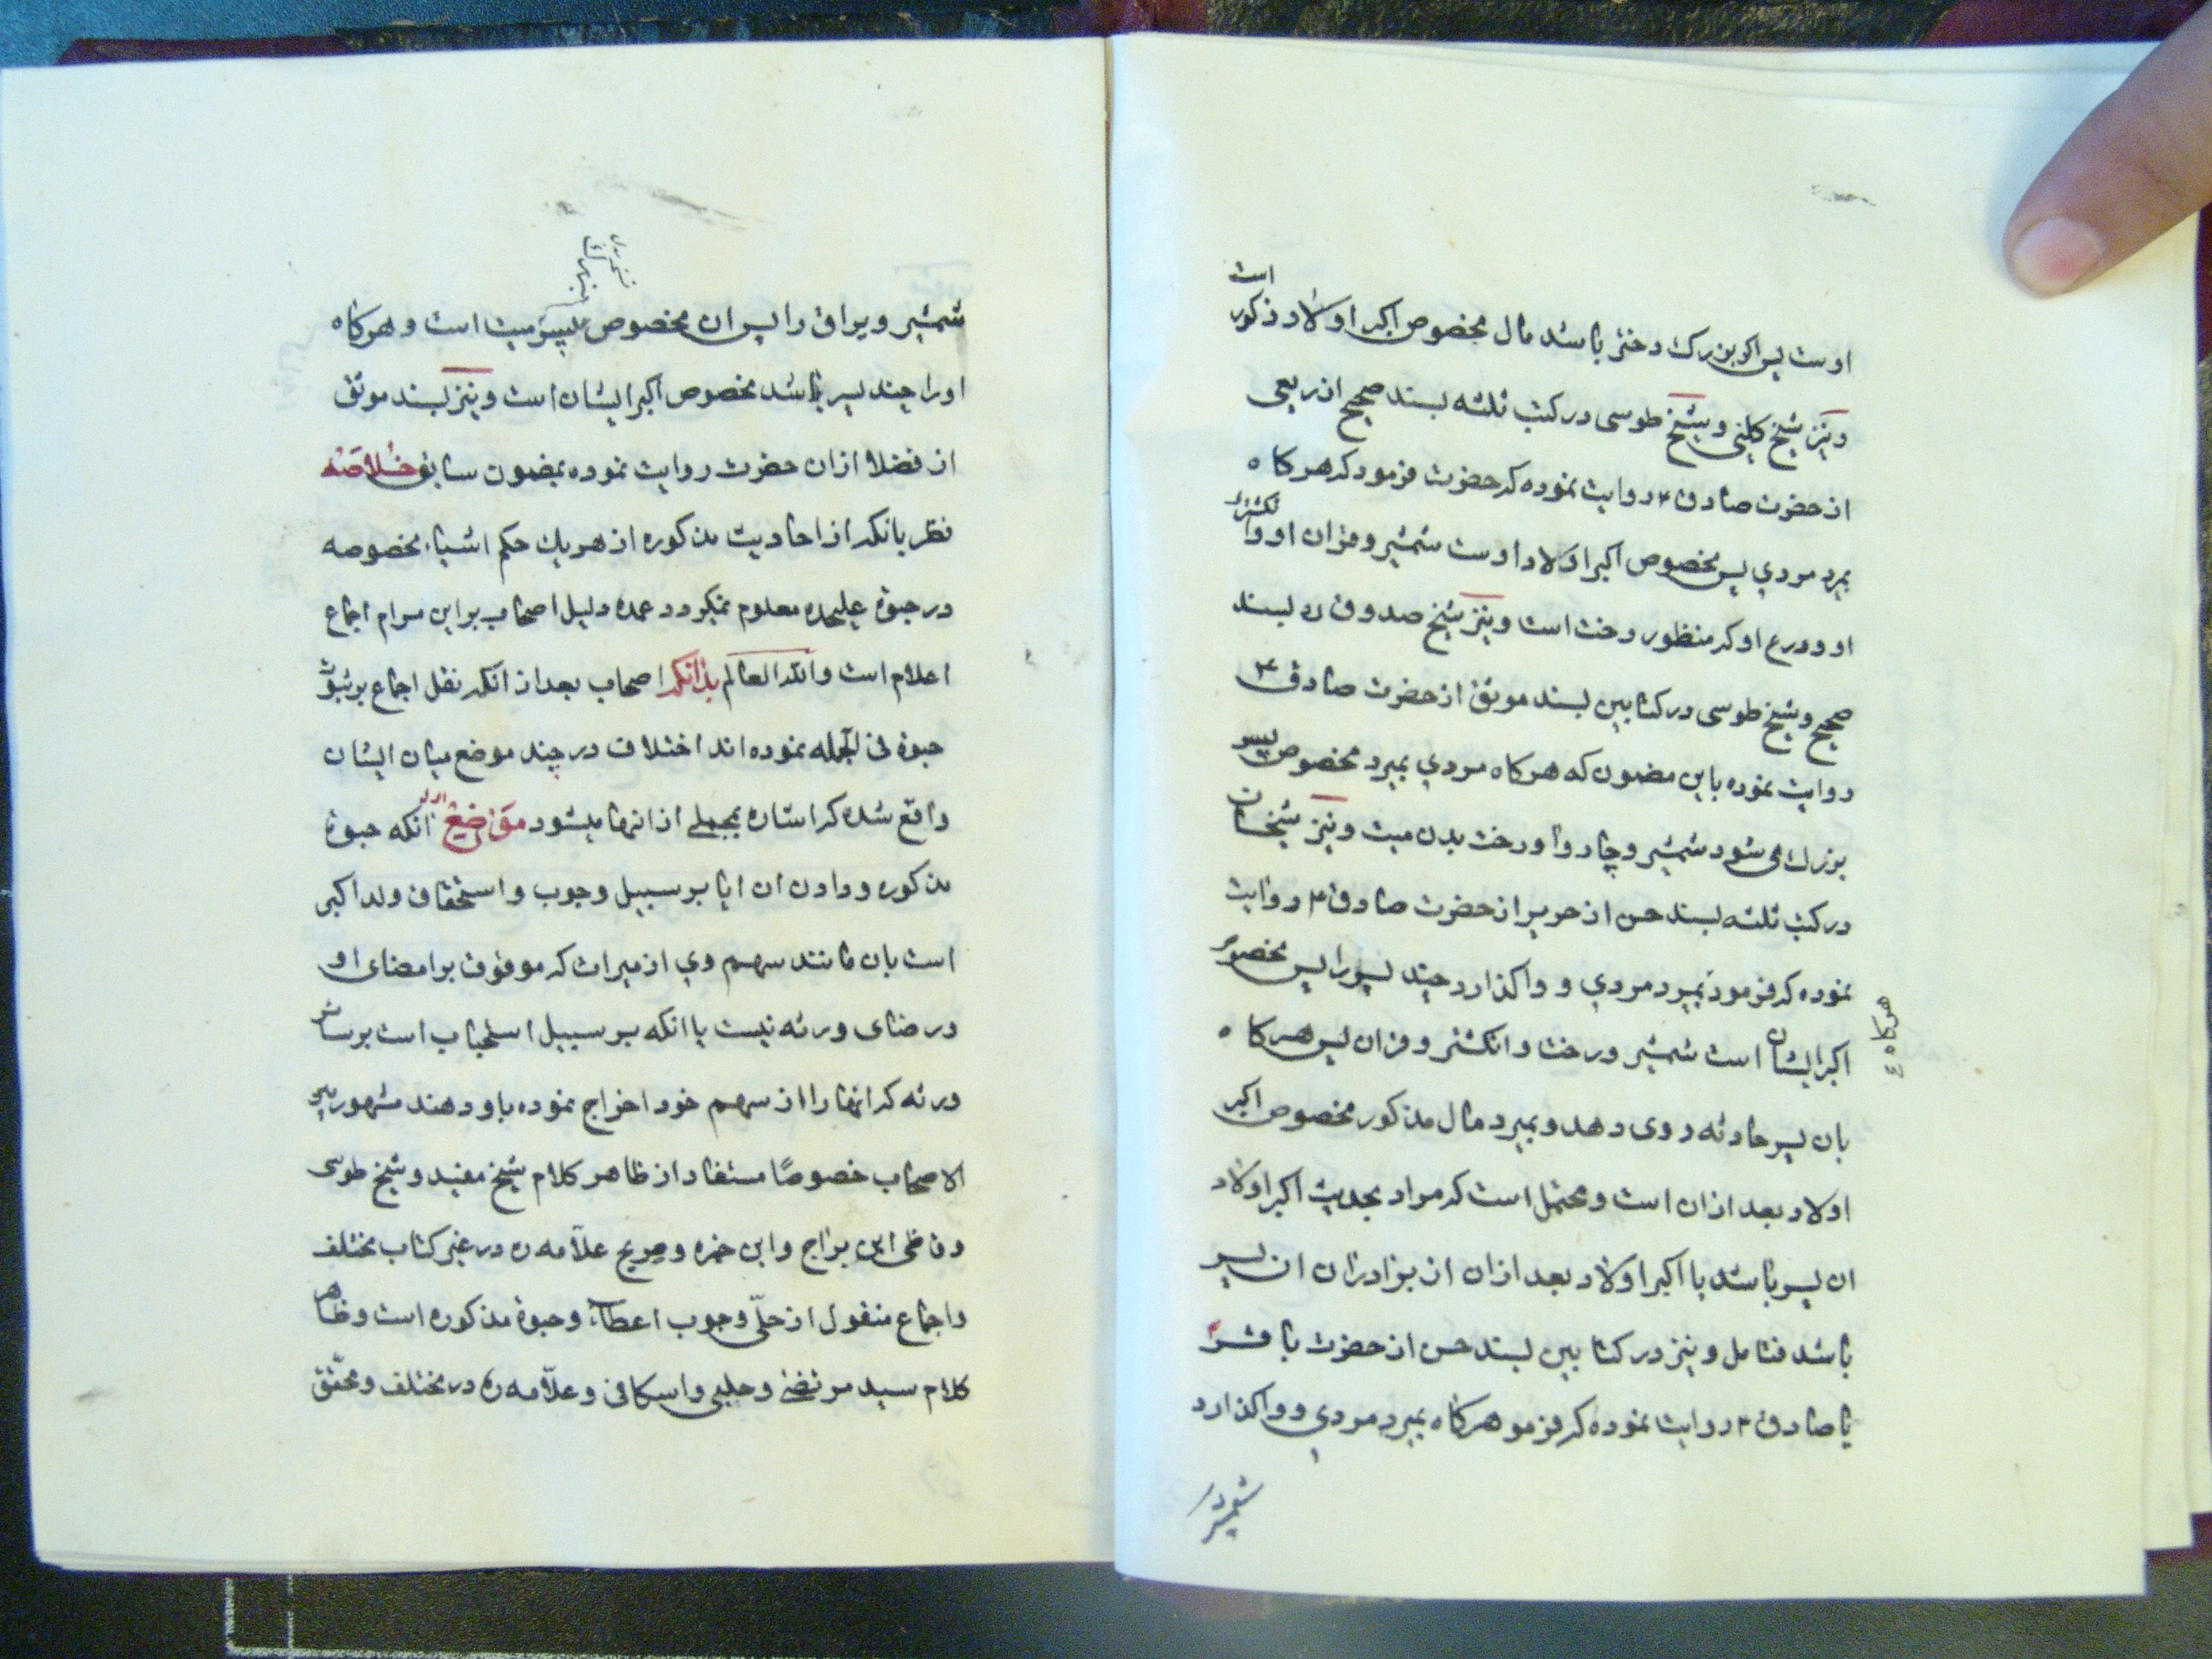 است
اوست پس اکر بزرک دختر باشد مال مخصوص اکبر اولاد ذکور
و نیز شیخ کلینی و شیخ طوسی در کتب ثلثه بسند صحیح از ربعی
از حضرت صادق ۴ روایت نموده که حضرت فرمود که هرکاه
بمیرد مردی پس مخصوص اکبر اولاد اوست شمشیر و قران او و انکشتر
او و درع او که منظور رخت است و نیز شیخ صدوق ره بسند
صحیح و شیخ طوسی در کتابین بسند موثق از حضرت صادق ۴
روایت نموده باین مضمون که هرکاه مردی بمیرد مخصوص پسر
بزرک می شود شمشیر و چاروا و رخت بدن میت و نیز شیخان
در کتب ثلثه بسند حسن از حریز از حضرت صادق ۴ روایت
نموده که فرمود بمیرد مردی و واکذارد چند پسر را پس مخصوص
هرکاه
اکبر ایشان است شمشیر و رخت و انکشتر و قران پس هرکاه
بان پسر حادثه روی دهد و بمیرد مال مذکور مخصوص اکبر
اولاد بعد ازان است و محتمل است که مراد بحدیث اکبر اولاد
ان پسر باشد یا اکبر اولاد بعد ازان از برادران ان پسر
باشد فتامل و نیز در کتابین بسند حسن از حضرت باقر ۴
یا صادق ۴ روایت نموده که فرمو هرکاه بمیرد مردی و واکذارد
شمشیر
شمشیر و یراق را پس ان مخصوص پسر میت است و هرکاه
او را چند پسر باشد مخصوص اکبر ایشان است و نیز بسند موثق
از فضلا ازان حضرت روایت نموده بمضمون سابق خلاصه
نظر بانکه از احادیث مذکوره از هر یك حکم اشیاء مخصوصه
در حبوة علیحده معلوم نمیکردد عمده دلیل اصحاب بر این مرام اجماع
اعلام است والله العالم بدانکه اصحاب بعد از انکه نقل اجماع بر ثبوت
حبوة فی الجمله نموده اند اختلاف در چند موضع میان ایشان
واقع شده که اشاره بمجملی از انها میشود موضع اول انکه حبوة
مذکوره و دادن ان ایا بر سبیل وجوب و استحقاق ولد اکبر
است بان مانند سهم وی از میراث که موقوف بر امضای او
و رضای ورثه نیست یا انکه بر سبیل استحباب است بر سایر
ورثه که انها را از سهم خود اخراج نموده باو دهند مشهور بین
الاصحاب خصوصًا مستفاد از ظاهر کلام شیخ مفید و شیخ طوسی
و قاضی ابن براج و ابن حمزه و صریح علّامه ره در غیر کتاب مختلف
و اجماع منقول از حلّی وجوب اعطاء و حبوة مذکوره است و ظاهر
کلام سید مرتضی و حلبی و اسکافی و علّامه ره در مختلف و محقّق